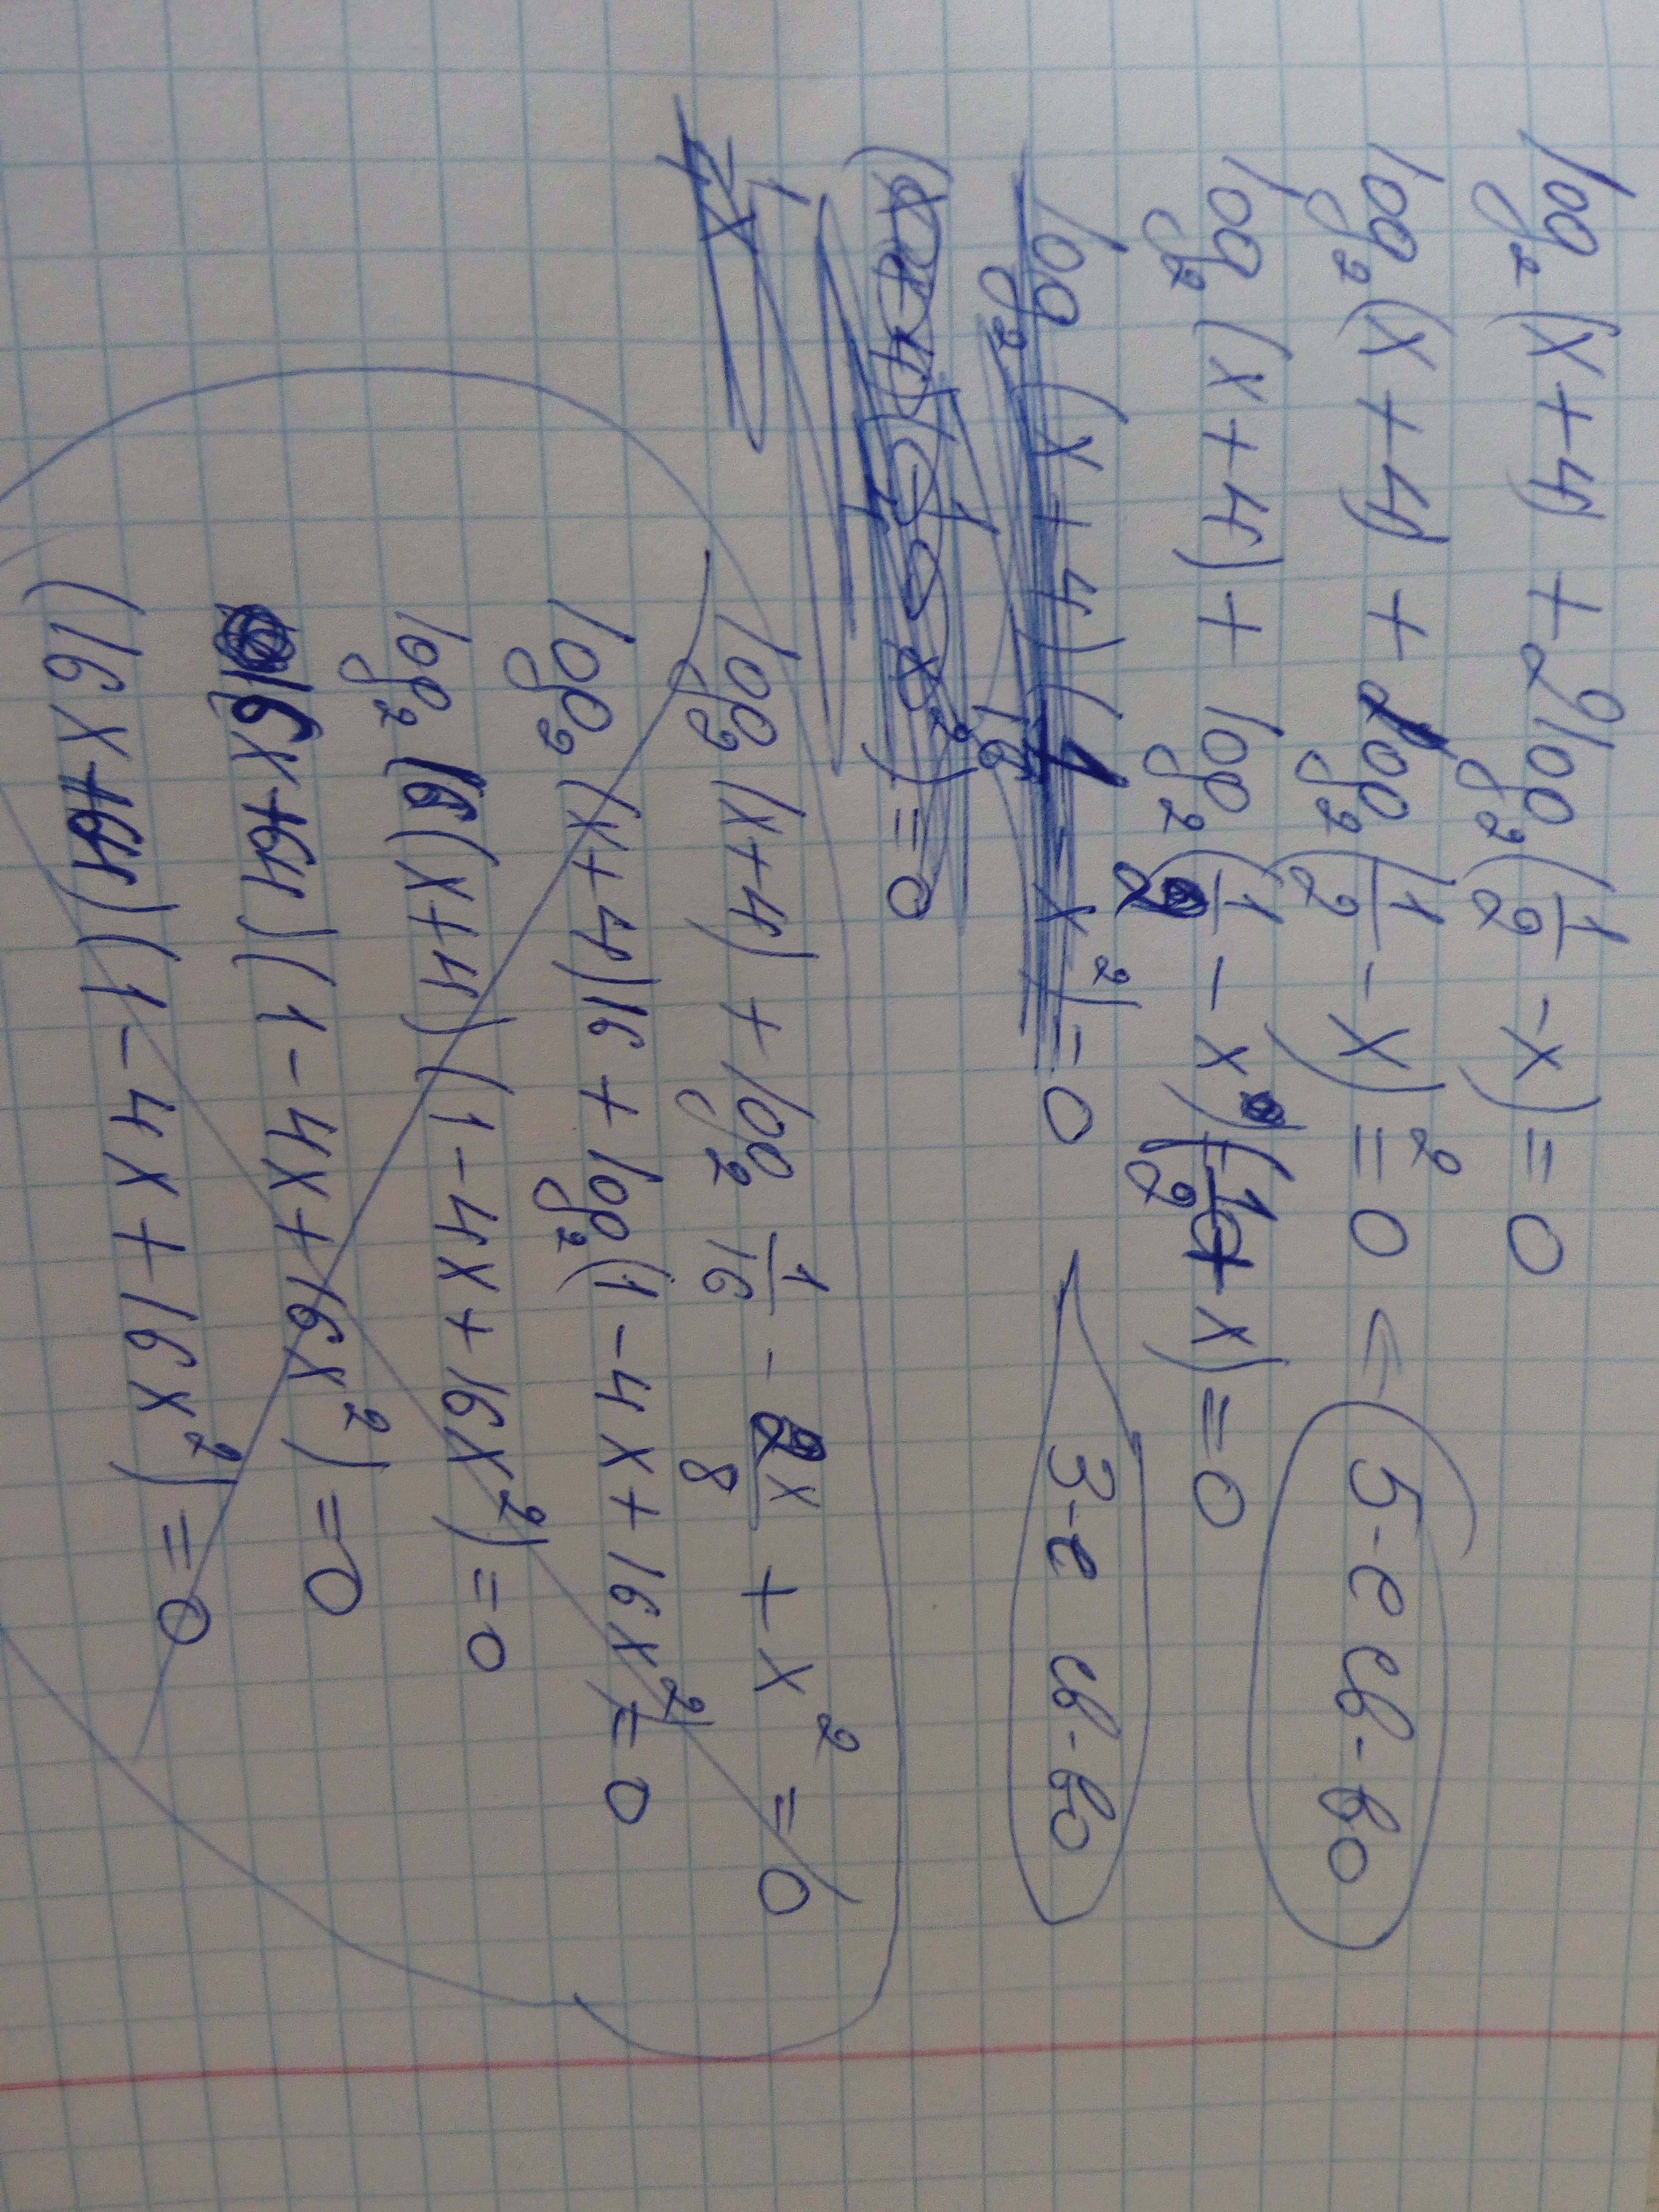 log₂(x+4)+2log₂(1/2-x)=0
log₂(x+4)+log₂(1/2-x)²=0 <
5-е св-во
log₂(x+4)+log₂(1/2-x)(1/2+x)=0
log₂(x+4)(1/4-x²)=0
3-е св-во
log₂(x+4)+log₂ 1/16-2x/8+x²=0
log₂(x+4)16+log₂(1-4x+16x²)=0
log₂16(x+4)(1-4x+16x²)=0
(16x+64)(1-4x+16x²)=0
(16x+64)(1-4x+16x²)=0